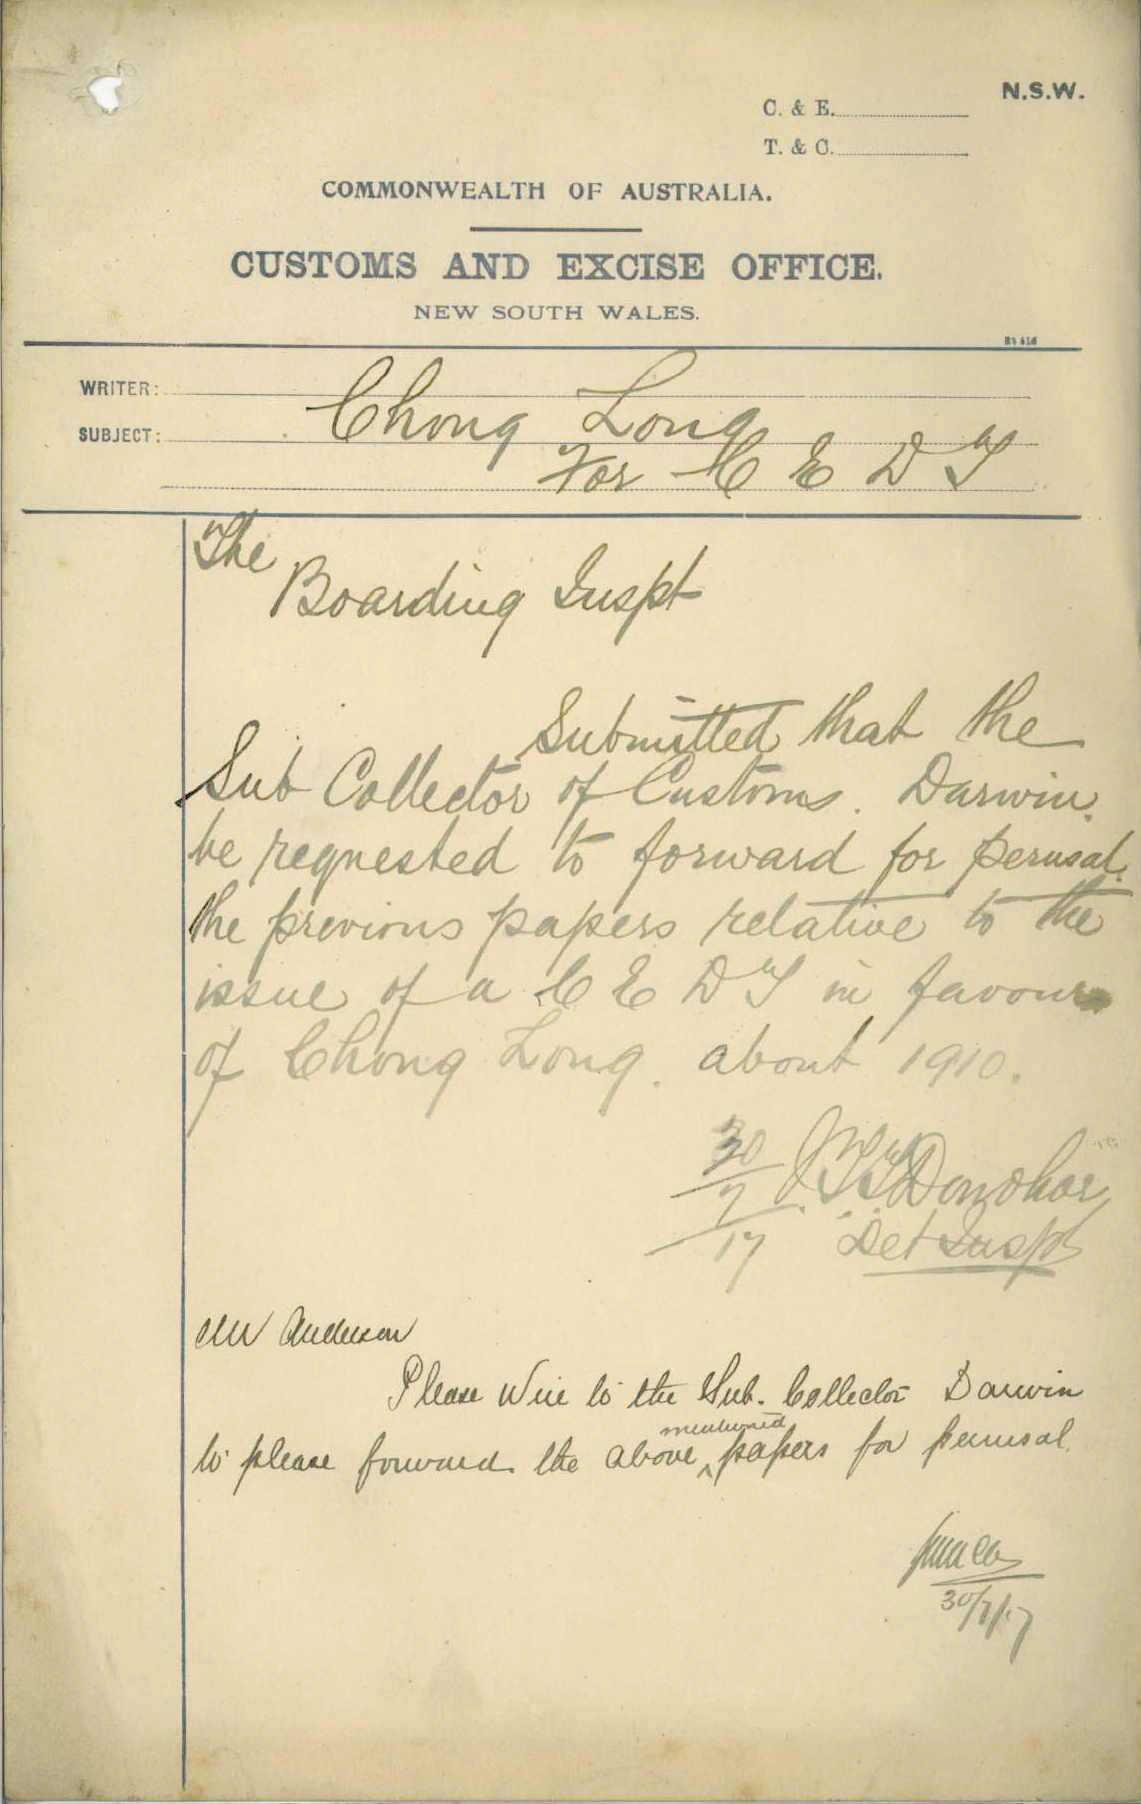 N.S.W.
C. & E.
T. & C.
COMMONWEALTH OF AUSTRALIA.
CUSTOMS AND EXCISE OFFICE.
NEW SOUTH WALES.
WRITER:
SUBJECT:
Chong Long
For C E D T
The
Boarding Inspt
Submitted that the
Sub Collector of Customs. Darwin.
be requested to forward for perusal.
the previous papers relative to the
issue of a C E D T in favour
of Chong Long. about 1910.
30/7/17 Donohoe
Det Insp
Mr Anderson
Please Wire to the Sub. Collector Darwin
to please forward the above mentioned papers for perusal.
30/7/17